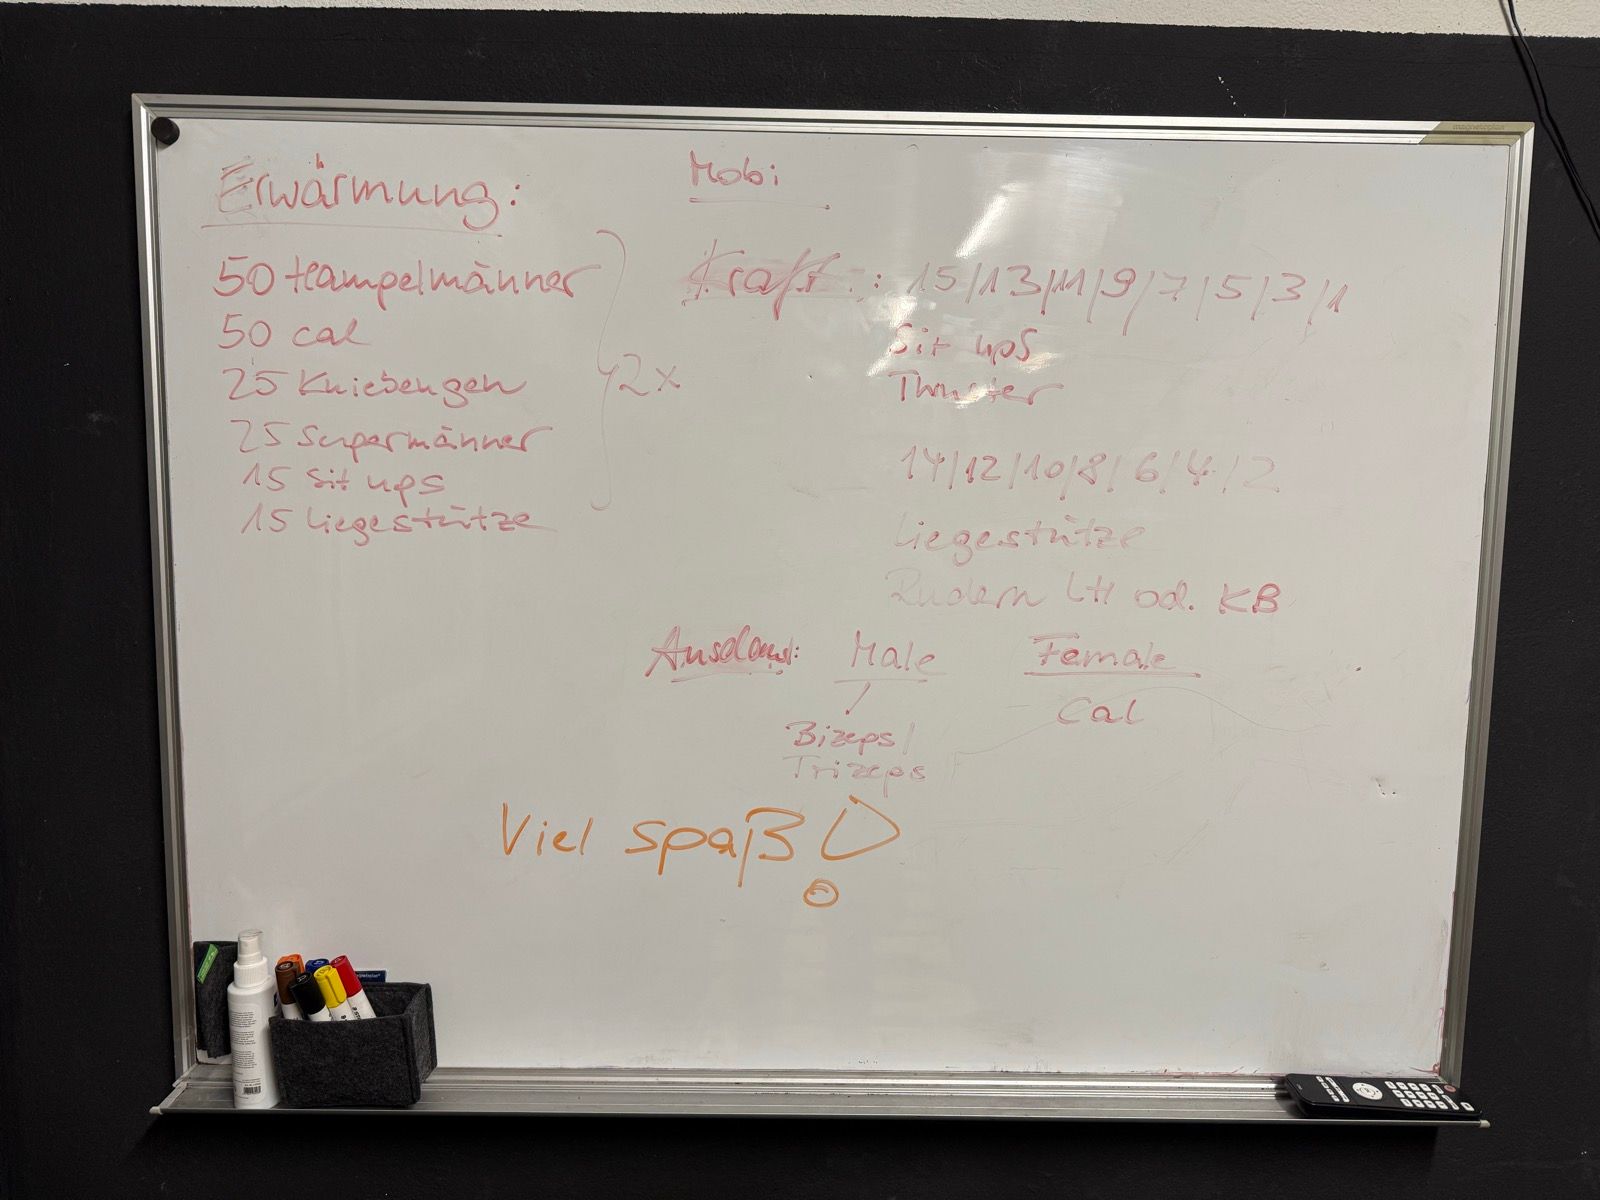 Erwärmung:
50 Hampelmänner
50 cal
25 Kniebeugen
25 Supermänner
15 Sit ups
15 Liegestütze
2x
Mobi
Kraft: 15/13/11/9/7/5/3/1
Sit ups
Thruster
14/12/10/8/6/4/2
Liegestütze
Rudern LH od. KB
Ausdauer: Male Female
Bizeps/ Cal
Trizeps
Viel Spaß!
magnetoplan